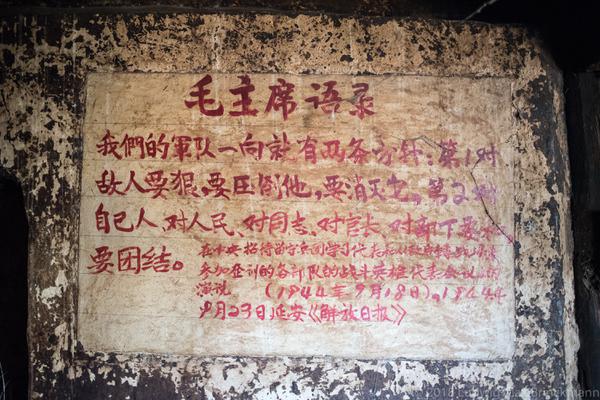 毛主席语录
我們的軍队一向就有两条方针:第1对
敌人要狠,要压倒他,要消灭它。第2对
自己人、对人民、对同志、对官长、对部下要
要团结。
在中央招待留守兵团学习代表和
参加整训的各部队的战斗英雄代表会议上的
演说 (1944年9月18日)。1944年
9月23日延安《解放日报》